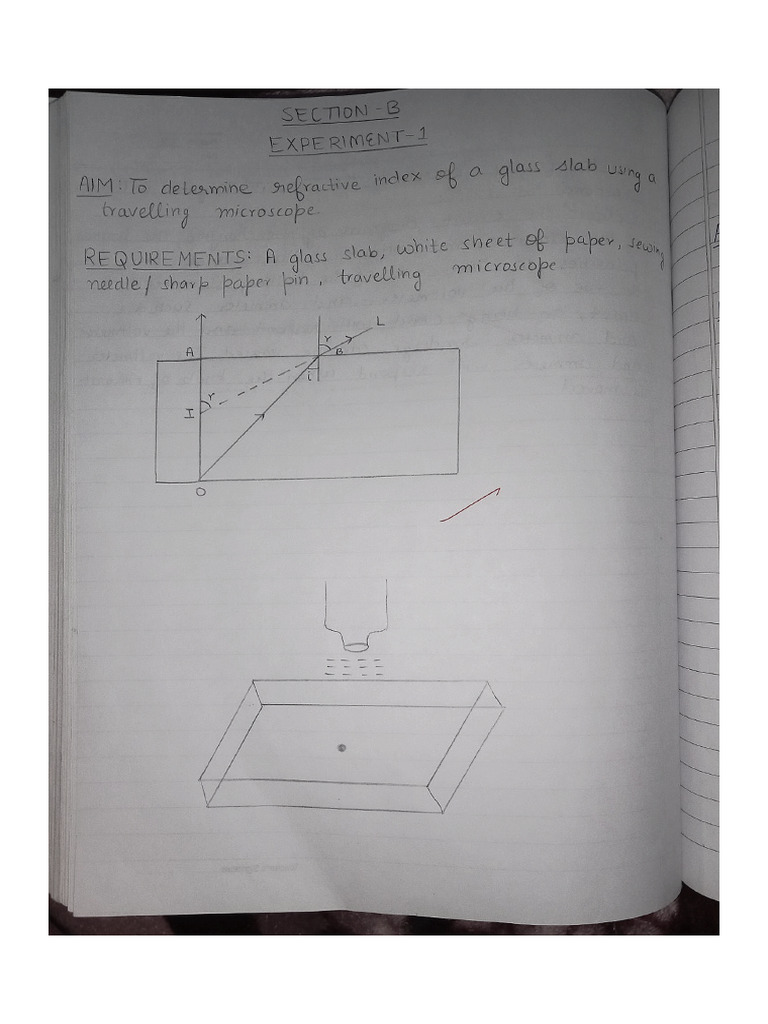 SECTION-B
EXPERIMENT-1
AIM: To determine refractive index of a glass slab using a
travelling microscope.
REQUIREMENTS: A glass slab, white sheet of paper, sewing
needle/sharp paper pin, travelling microscope
L
r
A
B
i
r
I
O